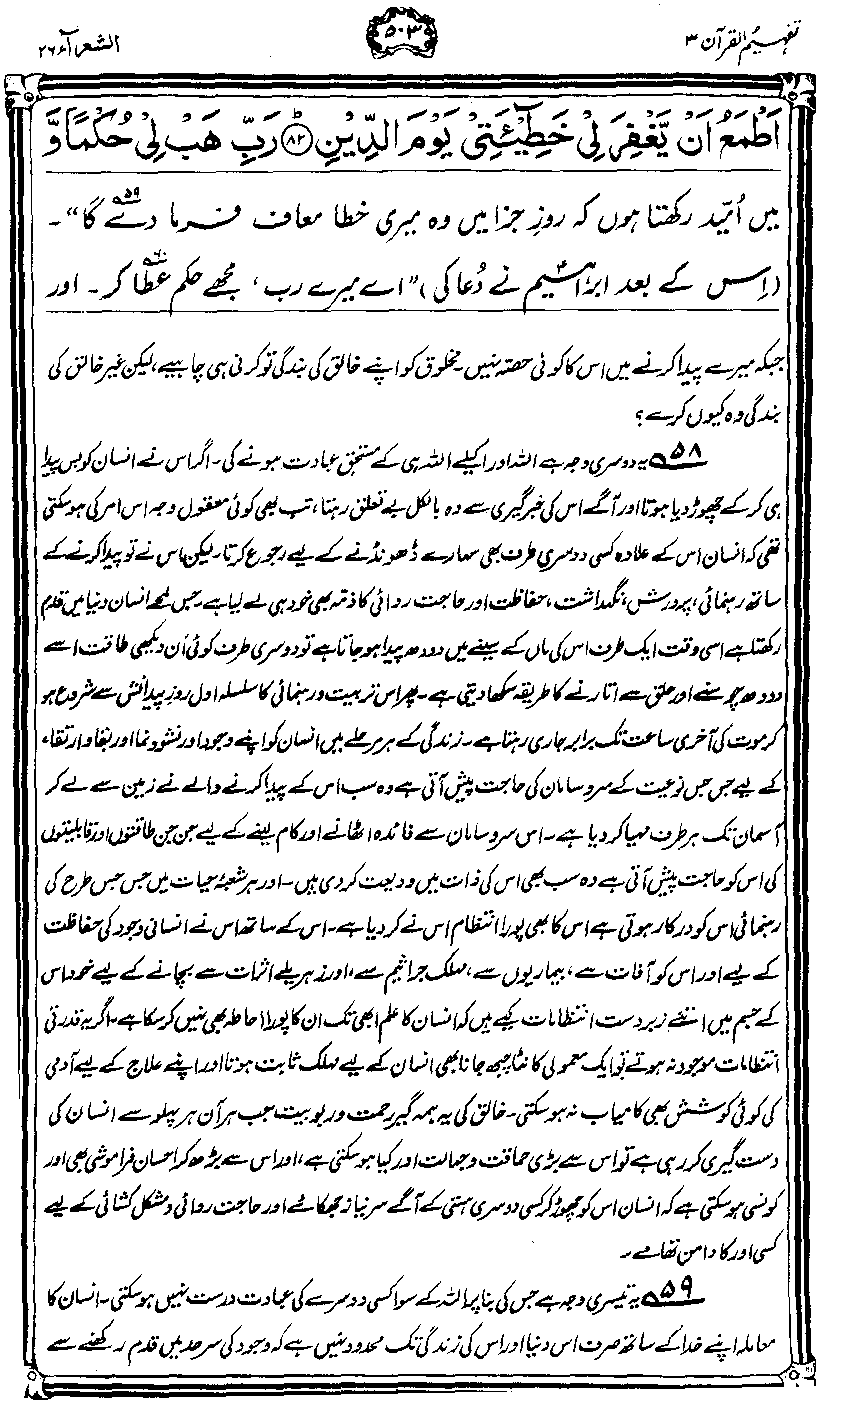 تفہیم القرآن ۳
۵۰۳
الشعرآء ۲۶
اَطْمَعُ اَنْ يَّغْفِرَ لِيْ خَطِيْٓئَتِيْ يَوْمَ الدِّيْنِ ۸۲ رَبِّ هَبْ لِيْ حُكْمًا وَّ
میں اُمید رکھتا ہوں کہ روزِ جزا میں وہ میری خطا معاف فرما دے گا“۔ ۵۹
(اِس کے بعد ابراہیمؑ نے دُعا کی) ”اے میرے رب، مجھے حکم عطا کر۔ ۶۰ اور
جبکہ میرے پیدا کرنے میں اس کا کوئی حصّہ نہیں۔ مخلوق کو اپنے خالق کی بندگی تو کرنی ہی چاہیے، لیکن غیر خالق کی
بندگی وہ کیوں کرے؟
۵۸ یہ دوسری وجہ ہے اللہ اور اکیلے اللہ ہی کے مستحقِ عبادت ہونے کی۔ اگر اس نے انسان کو بس پیدا
ہی کر کے چھوڑ دیا ہوتا اور آگے اس کی خبر گیری سے وہ بالکل بے تعلق رہتا، تب بھی کوئی معقول وجہ اس امر کی ہو سکتی
تھی کہ انسان اس کے علاوہ کسی دوسری طرف بھی سہارے ڈھونڈنے کے لیے رجوع کرتا۔ لیکن اس نے تو پیدا کرنے کے
ساتھ رہنمائی، پرورش، نگہداشت، حفاظت اور حاجت روائی کا ذمہ بھی خود ہی لے لیا ہے۔ جس لمحے انسان دنیا میں قدم
رکھتا ہے اسی وقت ایک طرف اس کی ماں کے سینے میں دودھ پیدا ہو جاتا ہے تو دوسری طرف کوئی اَن دیکھی طاقت اسے
دودھ چوسنے اور حلق سے اتارنے کا طریقہ سکھا دیتی ہے۔ پھر اس تربیت و رہنمائی کا سلسلہ اول روز پیدائش سے شروع ہو
کر موت کی آخری ساعت تک برابر جاری رہتا ہے۔ زندگی کے ہر مرحلے میں انسان کو اپنے وجود اور نشوونما اور بقا و ارتقاء
کے لیے جس جس نوعیت کے سروسامان کی حاجت پیش آتی ہے وہ سب اس کے پیدا کرنے والے نے زمین سے لے کر
آسمان تک ہر طرف مہیا کر دیا ہے۔ اس سروسامان سے فائدہ اٹھانے اور کام لینے کے لیے جن جن طاقتوں اور قابلیتوں
کی اس کو حاجت پیش آتی ہے وہ سب بھی اس کی ذات میں ودیعت کر دی ہیں۔ اور ہر شعبۂ حیات میں جس جس طرح کی
رہنمائی اس کو درکار ہوتی ہے اس کا بھی پورا انتظام اس نے کر دیا ہے۔ اس کے ساتھ اس نے انسانی وجود کی حفاظت
کے لیے اور اس کو آفات سے، بیماریوں سے، مہلک جراثیم سے، اور زہریلے اثرات سے بچانے کے لیے خود اس
کے جسم میں اتنے زبردست انتظامات کیے ہیں کہ انسان کا علم ابھی تک ان کا پورا احاطہ بھی نہیں کر سکا ہے۔ اگر یہ قدرتی
انتظامات موجود نہ ہوتے تو ایک معمولی کانٹا چبھ جانا بھی انسان کے لیے مہلک ثابت ہوتا اور اپنے علاج کے لیے آدمی
کی کوئی کوشش بھی کامیاب نہ ہو سکتی۔ خالق کی یہ ہمہ گیر رحمت و ربوبیت جب ہر آن ہر پہلو سے انسان کی
دست گیری کر رہی ہے تو اس سے بڑی حماقت و جہالت اور کیا ہو سکتی ہے، اور اس سے بڑھ کر احسان فراموشی بھی اور
کونسی ہو سکتی ہے کہ انسان اس کو چھوڑ کر کسی دوسری ہستی کے آگے سر نیاز جھکائے اور حاجت روائی و مشکل کشائی کے لیے
کسی اور کا دامن تھامے۔
۵۹ یہ تیسری وجہ ہے جس کی بنا پر اللہ کے سوا کسی دوسرے کی عبادت درست نہیں ہو سکتی۔ انسان کا
معاملہ اپنے خدا کے ساتھ صرف اس دنیا اور اس کی زندگی تک محدود نہیں ہے کہ وجود کی سرحد میں قدم رکھنے سے